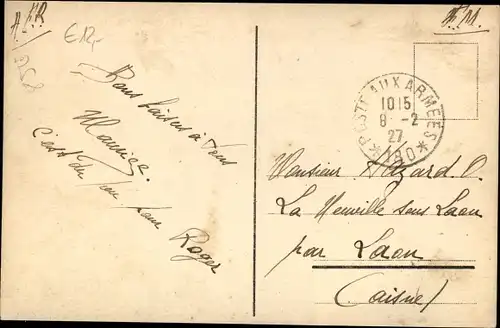 A.FR
€12,-
F.M.
Bons baisers à tous
Maurice.
c'est du pour
Roger
POSTE AUX ARMEES
1015
8-2
27
*190*
Monsieur Hazard O.
La Neuville sous Laon
par Laon
(Aisne)